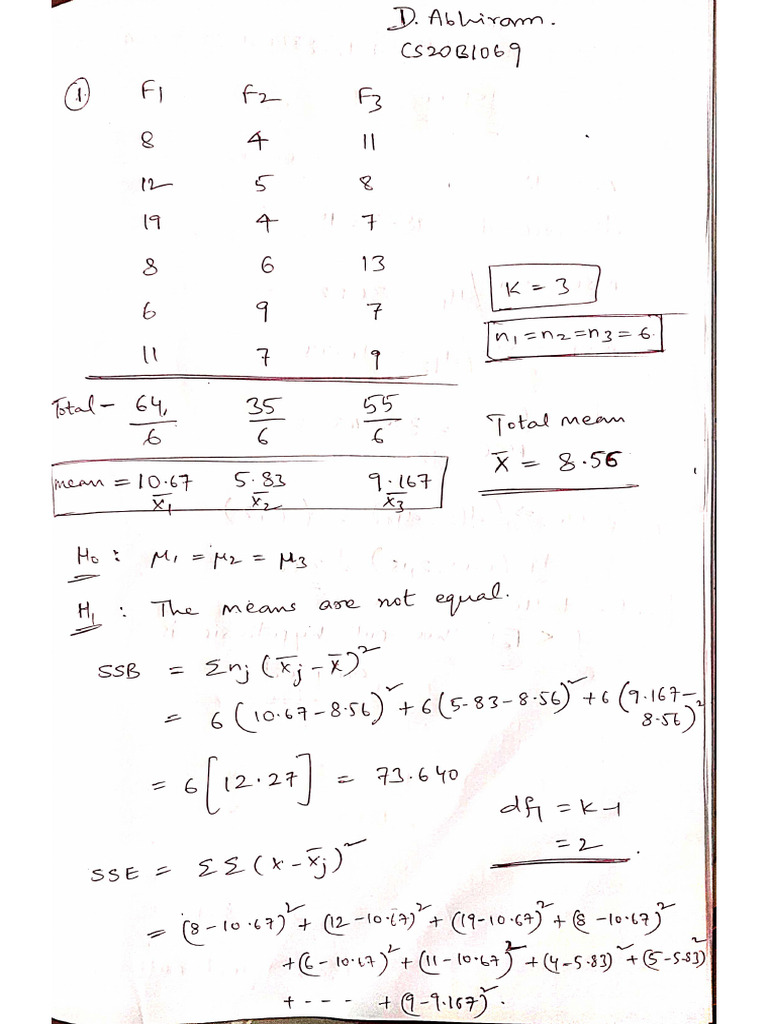 D. Abhiram.
CS20B1069
① F1 F2 F3
8 4 11
12 5 8
19 4 7
8 6 13
6 9 7
11 7 9
K = 3
n₁ = n₂ = n₃ = 6
Total - 64/6 35/6 55/6
mean = 10.67 5.83 9.167
x̄₁ x̄₂ x̄₃
Total mean
x̄ = 8.56
H₀ : μ₁ = μ₂ = μ₃
H₁ : The means are not equal.
SSB = Σnⱼ (x̄ⱼ - x̄)²
= 6(10.67-8.56)² + 6(5.83-8.56)² + 6(9.167-
8.56)²
= 6[12.27] = 73.640
df₁ = K-1
= 2
SSE = ΣΣ(x - x̄ⱼ)²
= (8-10.67)² + (12-10.67)² + (19-10.67)² + (8-10.67)²
+(6-10.67)² + (11-10.67)² + (4-5.83)² + (5-5.83)²
+ - - - + (9-9.167)².